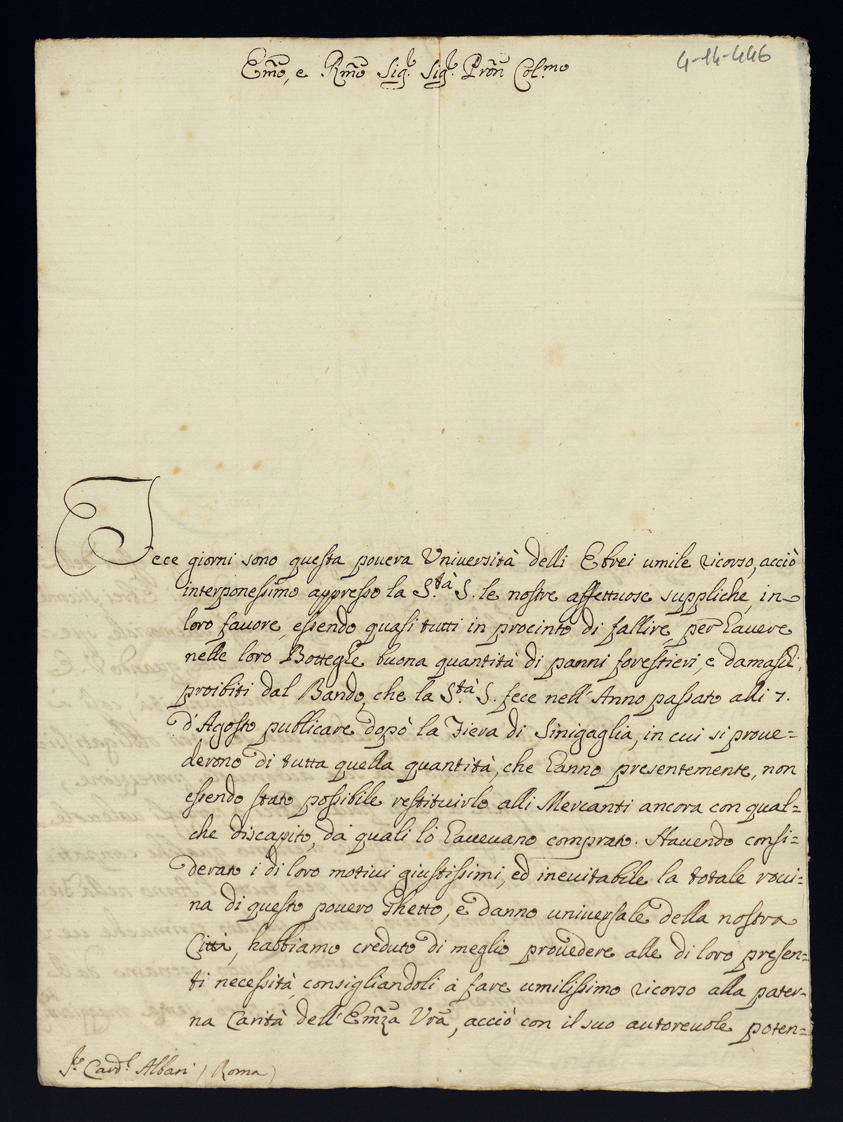 4-14-446
Em̃o, e Rm̃o Sig.r Sig.r Prõn Col.mo
Fece giorni sono questa povera Università delli Ebrei umile ricorso, acciò
interponessimo appresso la S.tà S. le nostre affettuose suppliche, in
loro favore, essendo quasi tutti in procinto di fallire, per havere
nelle loro Botteghe buona quantità di panni forestieri, e damaschi,
proibiti dal Bando, che la S.tà S. fece nell'Anno passato alli 7.
d'Agosto publicare dopò la Fiera di Sinigaglia, in cui si prove=
derono di tutta quella quantità, che hanno presentemente, non
essendo stato possibile restituirlo alli Mercanti ancora con qual=
che discapito, da quali lo havevano comprato. Havendo consi=
derato i di loro motivi giustissimi, ed inevitabile la totale rovi=
na di questo povero Ghetto, e danno universale della nostra
Città, habbiamo creduto di meglio provedere alle di loro presen=
ti necessità, consigliandoli à fare umilissimo ricorso alla pater=
na Carità dell'Em̃za Vrã, acciò con il suo autorevole poten=
S.r Card.l Albani (Roma)